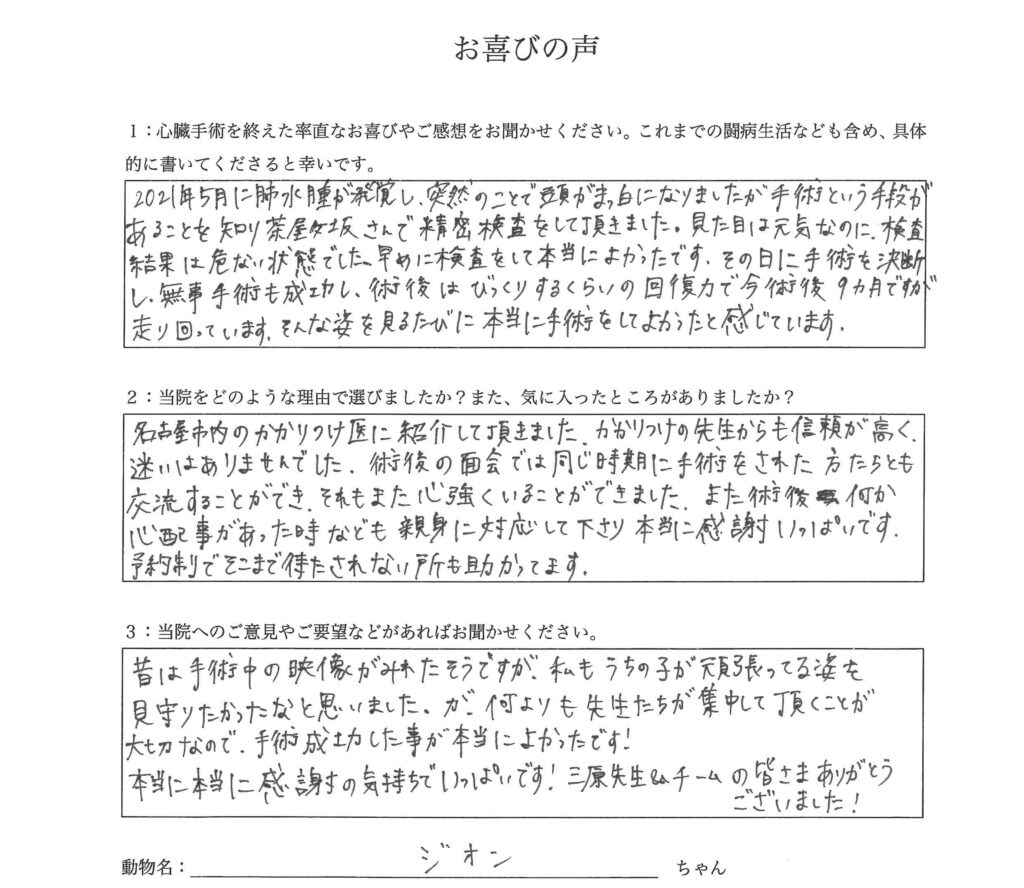 お喜びの声
1：心臓手術を終えた率直なお喜びやご感想をお聞かせください。これまでの闘病生活なども含め、具体
的に書いてくださると幸いです。
2021年5月に肺水腫が発覚し、突然のことで頭がまっ白になりましたが手術という手段が
あることを知り茶屋ヶ坂さんで精密検査をして頂きました。見た目は元気なのに、検査
結果は危ない状態でした。早めに検査をして本当によかったです。その日に手術を決断
し、無事手術も成功し、術後はびっくりするくらいの回復力で今術後9カ月ですが
走り回っています。そんな姿を見るたびに本当に手術をしてよかったと感じています。
2：当院をどのような理由で選びましたか？また、気に入ったところがありましたか？
名古屋市内のかかりつけ医に紹介して頂きました。かかりつけの先生からも信頼が高く、
迷いはありませんでした。術後の面会では同じ時期に手術をされた方たちとも
交流することができ、それもまた心強くいることができました。また術後何か
心配事があった時なども親身に対応して下さり本当に感謝いっぱいです。
予約制でそこまで待たされない所も助かってます。
3：当院へのご意見やご要望などがあればお聞かせください。
昔は手術中の映像がみれたそうですが、私もうちの子が頑張ってる姿を
見守りたかったなと思いました。が、何よりも先生たちが集中して頂くことが
大切なので、手術成功した事が本当によかったです！
本当に本当に感謝の気持ちでいっぱいです！三原先生&チームの皆さまありがとう
ございました！
動物名：ジオン ちゃん